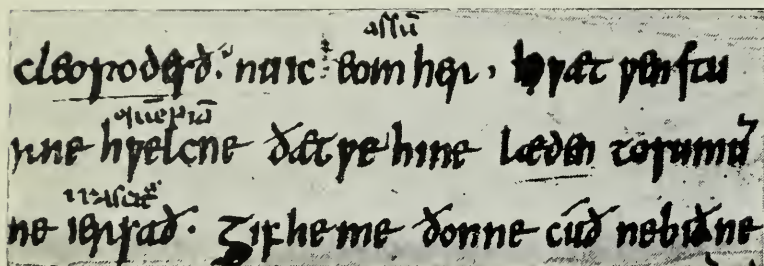 assū
cleopodesð. nu ic eom her, hƿæt ƿenstu
quēpiā
urne hƿelcne ðæt ƿe hine læden to sumū
irascat
ne iersað. Gif he me ðonne cuð ne bið ne